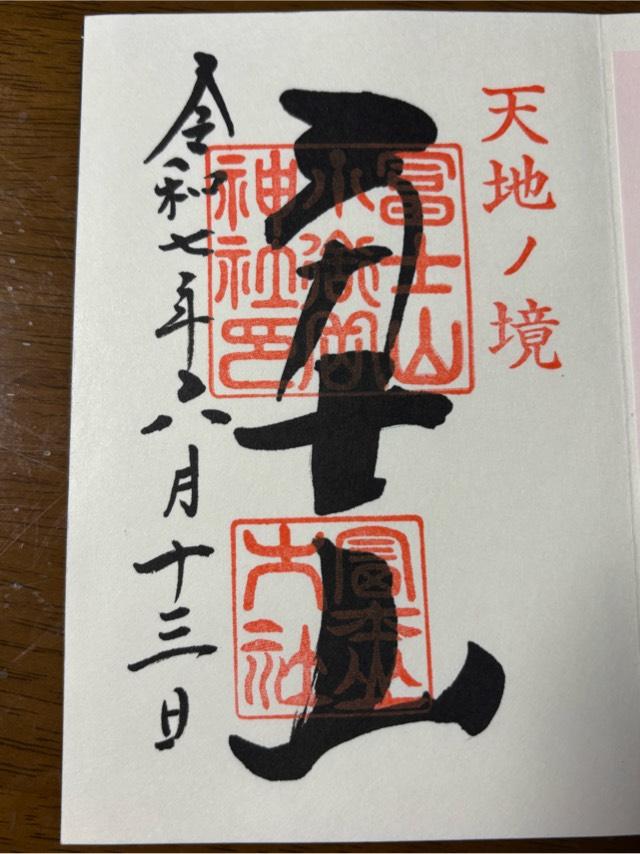 天地ノ境
冨士山
冨士山
小御嶽
神社印
令和七年六月十三日